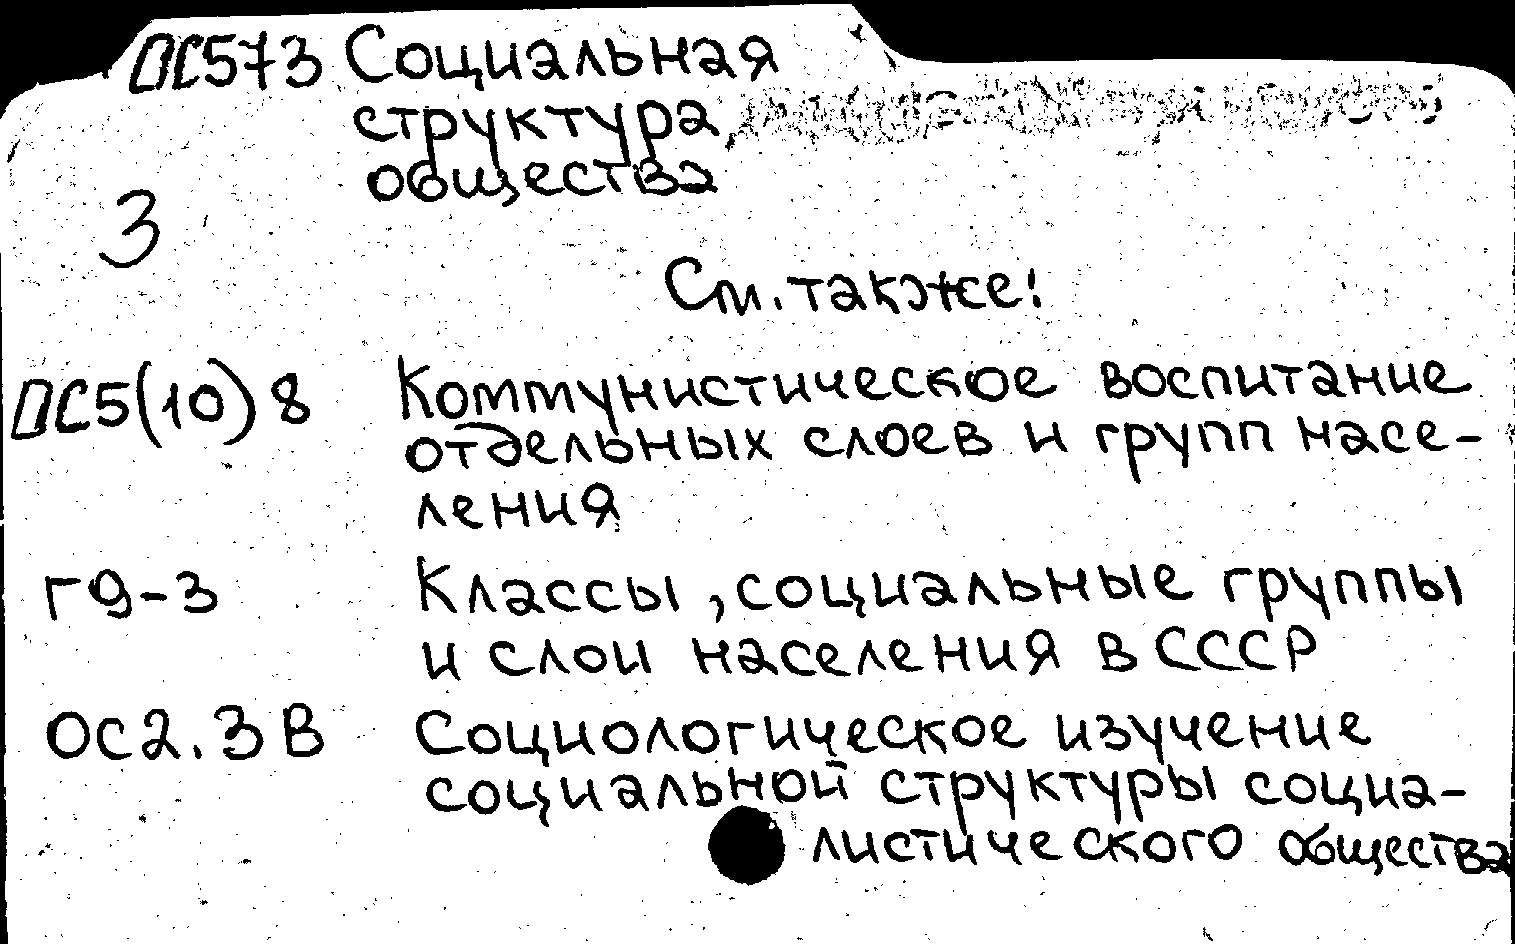 ПС573 Социальная
структура
общества
3
См. также:
ПС5(10)8 Коммунистическое воспитание
отдельных слоев и групп насе-
ления
Г9-3 Классы, социальные группы
и слои населения в СССР
ОС2.3В Социологическое изучение
социальной структуры социа-
листического общества